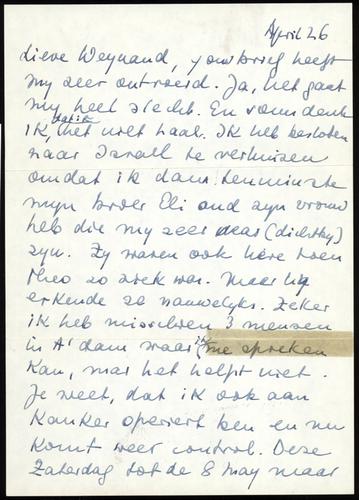 April 26
Lieve Weynand, jouw brief heeft
my zeer ontroerd. Ja, het gaat
my heel slecht. En soms denk
ik, dat ik het niet haal. Ik heb besloten
naar Israll te verhuizen
omdat ik dan tenminste
myn broer Eli and zyn vrouw
heb die my zeer near (dichtby)
zyn. Zy waren ook here toen
Theo zo ziek was. Maar hy
erkende ze nauwelyks. Zeker
ik heb misschien 3 mensen
in A'dam waar ik me spreken
kan, mar het helpt niet.
Je weet, dat ik ook aan
Kanker operiert ben en nu
komt weer control. Deze
Zaterdag tot de 8 May maar